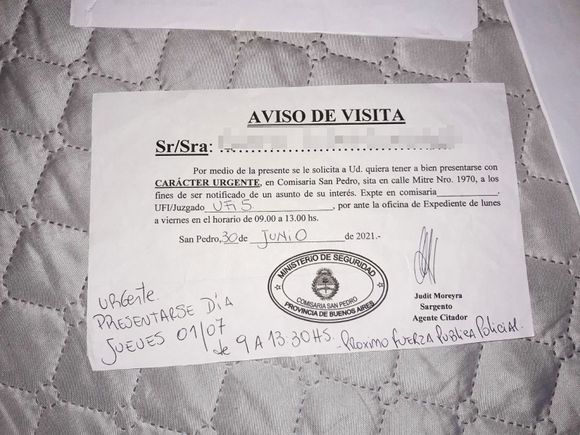 AVISO DE VISITA
Sr/Sra:
Por medio de la presente se le solicita a Ud. quiera tener a bien presentarse con
CARÁCTER URGENTE, en Comisaria San Pedro, sita en calle Mitre Nro. 1970, a los
fines de ser notificado de un asunto de su interés. Expte en comisaria
UFI/Juzgado UFI 5, por ante la oficina de Expediente de lunes
a viernes en el horario de 09.00 a 13.00 hs.
San Pedro, 30 de JUNIO de 2021.-
MINISTERIO DE SEGURIDAD
COMISARIA SAN PEDRO
PROVINCIA DE BUENOS AIRES
Judit Moreyra
Sargento
Agente Citador
URGENTE.
PRESENTARSE DÍA
JUEVES 01/07
de 9 A 13:30HS. PROXIMO FUERZA PUBLICA POLICIAL.